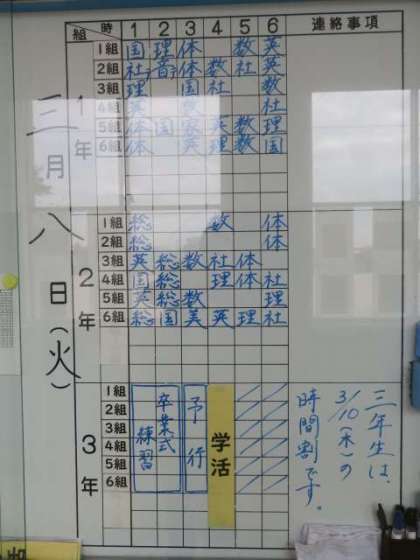 組 時 1 2 3 4 5 6 連絡事項
三月八日(火)
1年
1組 国 理 体 数 英
2組 社 音 体 数 社 英
3組 理 国 社 数
4組 英 数 社
5組 体 国 家 英 数 理
6組 体 英 理 数 国
2年
1組 総 数 体
2組 総 体
3組 英 総 数 社 体
4組 国 総 理 体 社
5組 英 総 数 理
6組 総 国 美 英 理 社
3年
1組
2組
3組
4組
5組
6組
卒業式
練習
予行
学活
三年生は、
3/10(木)の
時間割です。